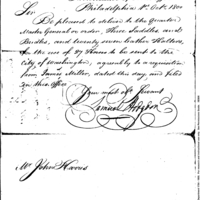 Philadelphia 8th Octr 1800
Sir
Be pleased to deliver to the Quarter
Master General or order Three Saddles and
Bridles, and twenty seven leather Halters
for the use of 27 Horses to be sent to the
City of Washington, agreeably to a requisition
from James Miller, dated this day, and filed
in this Office
Your most obt Servant
Samuel Hodgdon
Mr John Harris